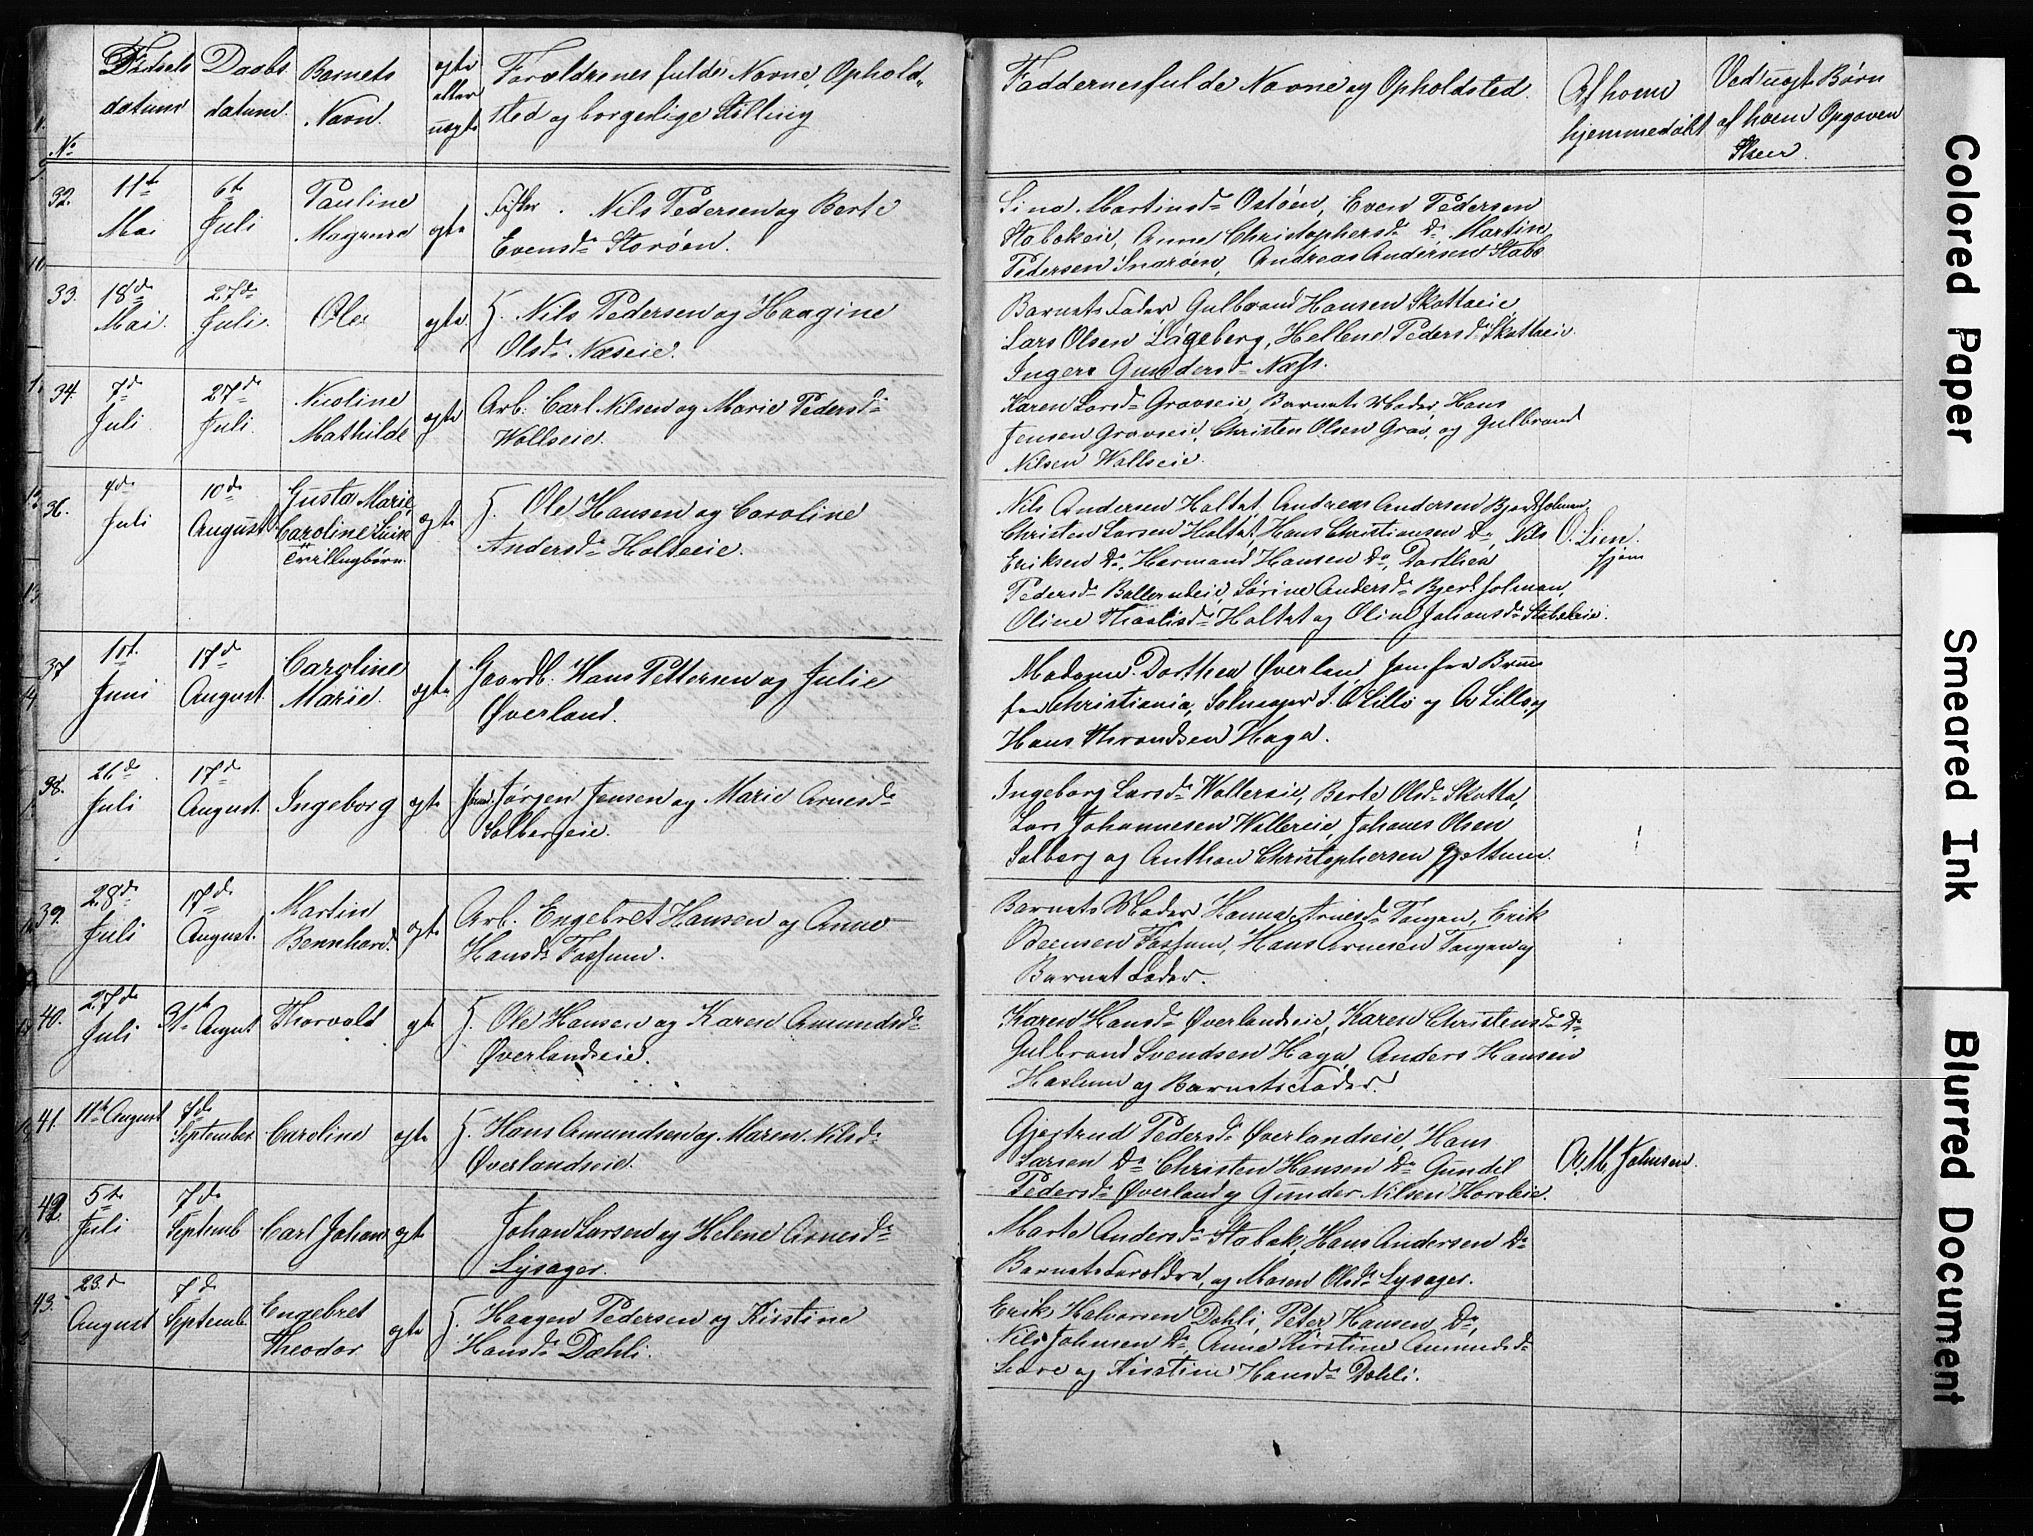 No
Fødsels
datum
Daabs
datum.
Barnets
Navn.
ægte
eller
uægte
Forældrenes fulde Navne, Ophold„
sted og borgerlige Stilling
32.
11te
Mai
6te
Juli
Pauline
Magrena
ægte
Nils Pedersen og Berte
Evensd. Storøen.
33.
18de
Mai.
27de
Juli.
Ole
ægte.
H. Nils Pedersen og Haagine
Olsd. Næseie.
34.
7de
Juli.
27de
Juli.
Nicoline
Mathilde
ægte
Arb. Carl Nilsen og Marie Pedersd.
Wollseie.
36.
4de
Juli
10de
August
Gusta Marie,
Caroline Luise
Tvillingbørn.
ægte
H. Ole Hansen og Caroline
Andersd. Holteeie.
37
1ste
Juni
17de
August.
Caroline
Mariie.
ægte
Gaardb. Hans Pettersen og Julie
Øverland.
38.
21de
Juli
17de
August.
Ingeborg
ægte
Jørgen Jensen og Marie Arnesd.
Solbergeie.
39.
28de
Juli
17de
August.
Martin
Bernhard.
ægte
Arb. Engebret Hansen og Anne
Hansd. Fossum.
40.
27de
Juli
31te August
Thorvald
ægte
H. Ole Hansen og Karen Amundsd.
Øverlandseie.
41.
11te August
7de
September
Caroline
ægte
H. Hans Amundsen og Maren Nilsd.
Øverlandseie.
42.
5te
Juli
7de
Septemb
Carl Johan
ægte
Johan Larsen og Helene Arnesd.
Lysager.
43.
23de
August
7de
Septemb.
Engebret
Theodor
ægte
H. Haagen Pedersen og Kirstine
Hansd. Dæhli.
Faddernes fulde Navne og Opholdsted.
Af hvem
hjemmedøbt
Ved uægte Børn
af hvem Opgaven
Skeer.
Sina Martinsd. Ostøen, Even Pedersen
Stabekeie, Anne Christophersd. Do Martin
Pedersen Snarøen, Andreas Andersen Stabe
Barnets Fader, Gulbrand Hansen Skottaeie,
Lars Olsen Ligeberg, Hellene Pedersd. Skottaeie
Inger Gundersd. Næss.
Karen Larsd. Gravseie, Barnets Moder, Hans
Jensen Gravseie, Christen Olsen Grav, og Gulbrand
Nilsen Wollseie.
Nils Andersen Holtet, Andreas Andersen
Christen Larsen Holtet, Hans Christiansen Do, Nils
Eriksen Do, Harmand Hansen Do, Dorthea
Pedersd. Sørine Andersd.
Oline Holtet og Oline Johansd. Stabekeie.
O. Lien.
hjem
Madame Dorthea Øverland, Jomfru Bruu
fra Christiania, og A Lilloe
Hans Throndsen Haga.
Ingeborg Larsd. Wollereie, Berte Olsd. Skotta,
Lars Johannesen Wollereie, Johanes Olsen
Solberg og Anthon Christophersen Gjettum.
Barnets Moder, Hanna Arnesd. Tangen, Erik
Fossum, Hans Arnesen Tangen og
Barnet Fader.
Karen Hansd. Øverlandseie, Karen Christensd. Do
Gulbrand Svendsen Haga Anders Hansen
Haslum og Barnets Fader.
Gjertrud Pedersd. Øverlandseie, Hans
Larsen Do Christen Hansen Do Gundil
Pedersd. Øverland og Gunder Nilsen
A. M. Johnsen.
Marte Andersd. Stabek, Hans Andersen Do
Barnets Forældre, og Maren Olsd. Lysager.
Erik Halvorsen Dæhli, Peter Hansen, Do,
Nils Johnsen Do, Anne Kirstine Amundsd.
og Kirstine Hansd. Dæhli.
Colored Paper
Smeared Ink
Blurred Document